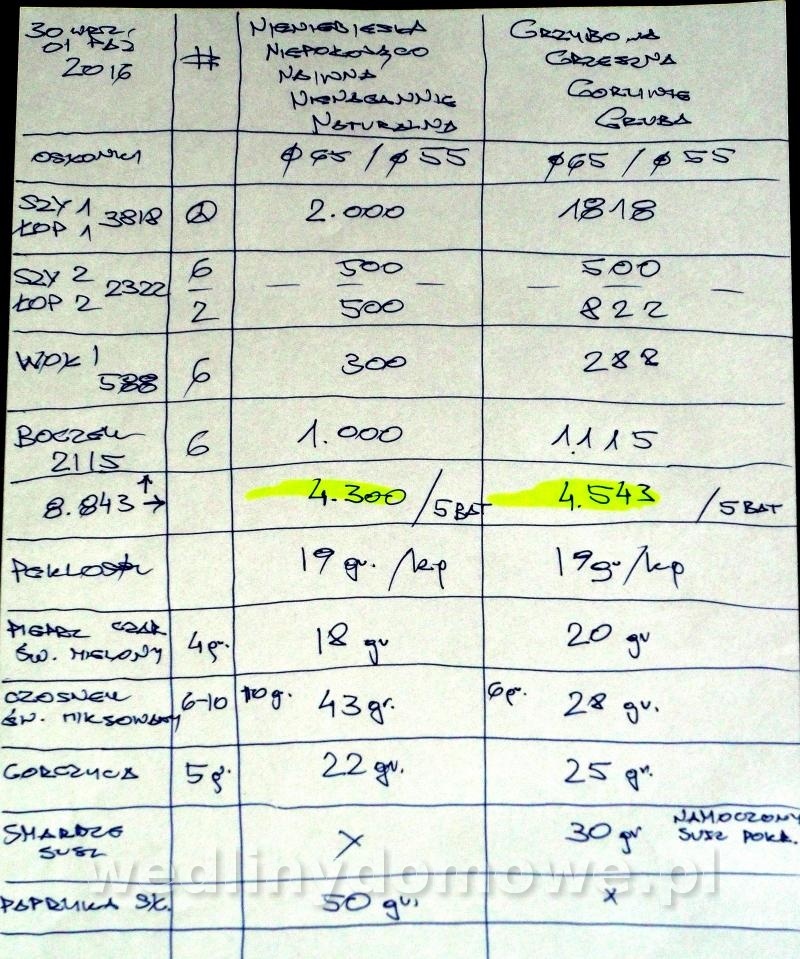 30 WRZ.
01 PAŹ
2016
#
NIENIEBIESKA
NIEPOKOJĄCO
NAIWNA
NIENAGANNIE
NATURALNA
GRZYBOWA
GRZESZNA
GORLIWIE
GRUBA
OSŁONKI
φ65 / φ55
φ65 / φ55
SZY 1
ŁOP 1
3818
2.000
1818
SZY 2
ŁOP 2
2322
6
2
500
500
500
822
WOŁ 1
588
6
300
288
BOCZEK
2115
6
1.000
1.115
8.843
4.300 / 5 BAT
4.543 / 5 BAT
PEKLOSÓL
19 gr. /kg
19 gr /kg
PIEPRZ CZAR.
ŚW. MIELONY
4 gr.
18 gr
20 gr
CZOSNEK
ŚW. MIKSOWANY
6-10
10 g.
43 gr.
6 g.
28 gr.
GORCZYCA
5 g.
22 gr.
25 gr.
SMARDZE
SUSZ
X
30 gr
NAMOCZONY
SUSZ POKR.
PAPRYKA SŁ.
50 gr.
X
wedlinydomowe.pl